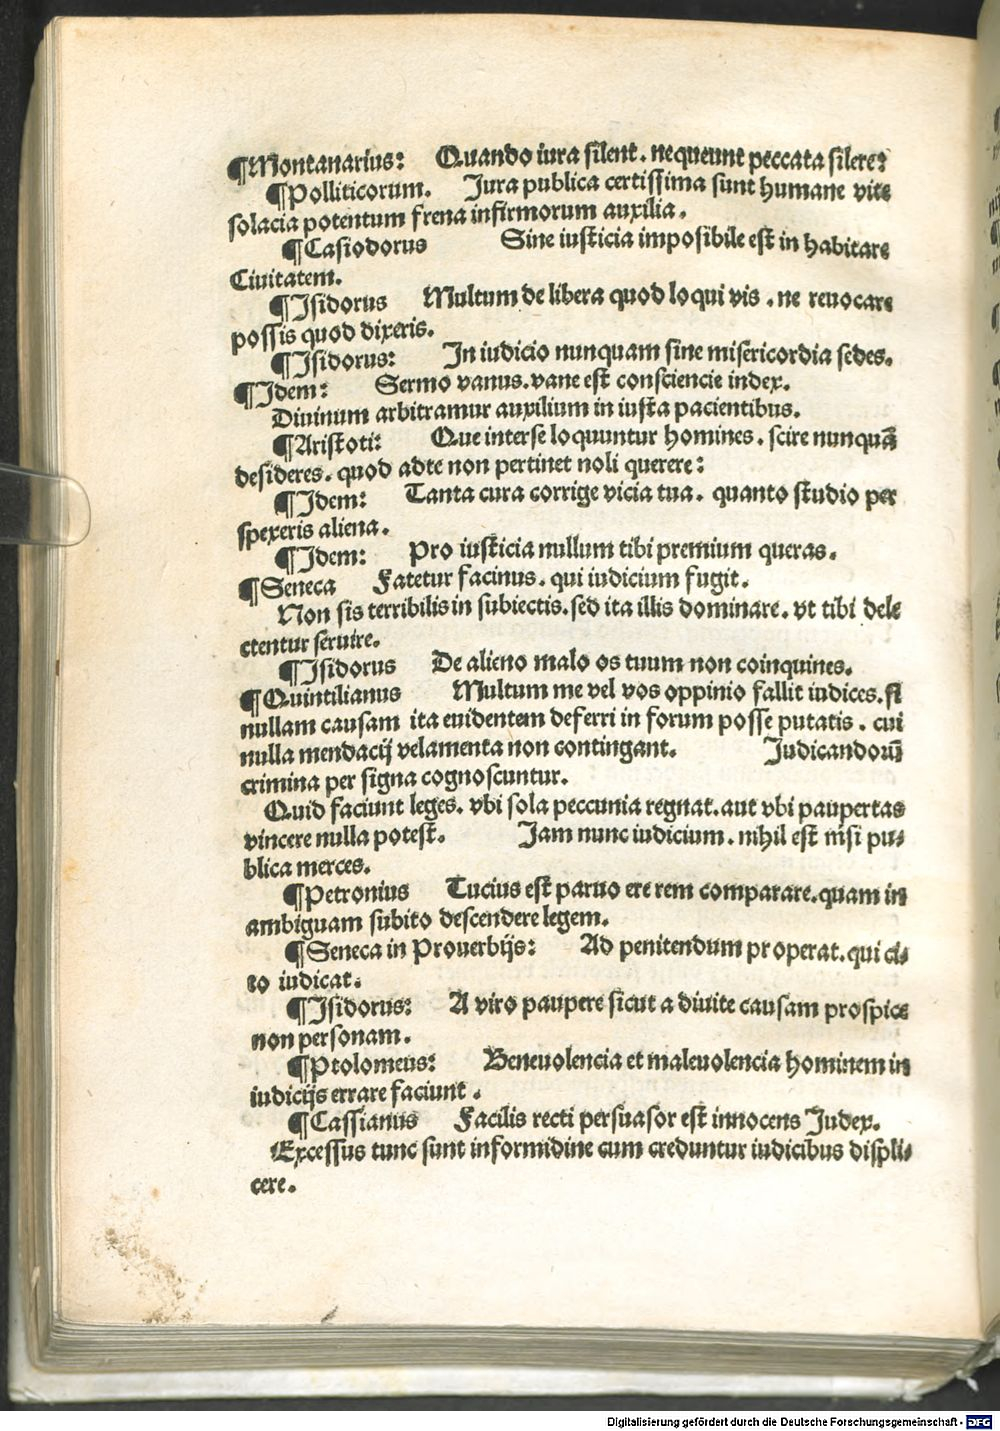 ¶Montanarius: Quando iura silent. nequeunt peccata silere:
¶Polliticorum. Iura publica certissima sunt humane vite
solacia potentum frena infirmorum auxilia.
¶Casiodorus Sine iusticia imposibile est in habitare
Ciuitatem.
¶Isidorus Multum de libera quod loqui vis. ne reuocare
possis quod dixeris.
¶Isidorus: In iudicio nunquam sine misericordia sedes.
¶Idem: Sermo vanus. vane est consciencie index.
Diuinum arbitramur auxilium in iusta pacientibus.
¶Aristoti: Que interse loquuntur homines. scire nunquã
desideres. quod adte non pertinet noli querere:
¶Idem: Tanta cura corrige vicia tua. quanto studio per
spexeris aliena.
¶Idem: Pro iusticia nullum tibi premium queras.
¶Seneca Fatetur facinus. qui iudicium fugit.
Non sis terribilis in subiectis. sed ita illis dominare. vt tibi dele
ctentur seruire.
¶Isidorus De alieno malo os tuum non coinquines.
¶Quintilianus Multum me vel vos oppinio fallit iudices. si
nullam causam ita euidentem deferri in forum posse putatis. cui
nulla mendacij velamenta non contingant. Iudicandorũ
crimina per signa cognoscuntur.
Quid faciunt leges. vbi sola peccunia regnat. aut vbi paupertas
vincere nulla potest. Iam nunc iudicium. nihil est nisi pu-
blica merces.
¶Petronius Tucius est paruo ere rem comparare. quam in
ambiguam subito descendere legem.
¶Seneca in Prouerbijs: Ad penitendum properat. qui ci-
to iudicat.
¶Isidorus: A viro paupere sicut a diuite causam prospice
non personam.
¶Ptolomeus: Beneuolencia et maleuolencia hominem in
iudicijs errare faciunt.
¶Cassianus Facilis recti persuasor est innocens Iudex.
Excessus tunc sunt informidine cum creduntur iudicibus displi-
cere.
Digitalisierung gefördert durch die Deutsche Forschungsgemeinschaft - DFG